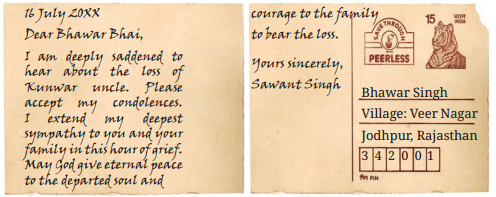 16 July 20XX
Dear Bhawar Bhai,
I am deeply saddened to
hear about the loss of
Kunwar uncle. Please
accept my condolences.
I extend my deepest
sympathy to you and your
family in this hour of grief.
May God give eternal peace
to the departed soul and
courage to the family
to bear the loss.
Yours sincerely,
Sawant Singh
SAVE THROUGH
PEERLESS
15
INDIA
Bhawar Singh
Village: Veer Nagar
Jodhpur, Rajasthan
3 4 2 0 0 1
पिन PIN